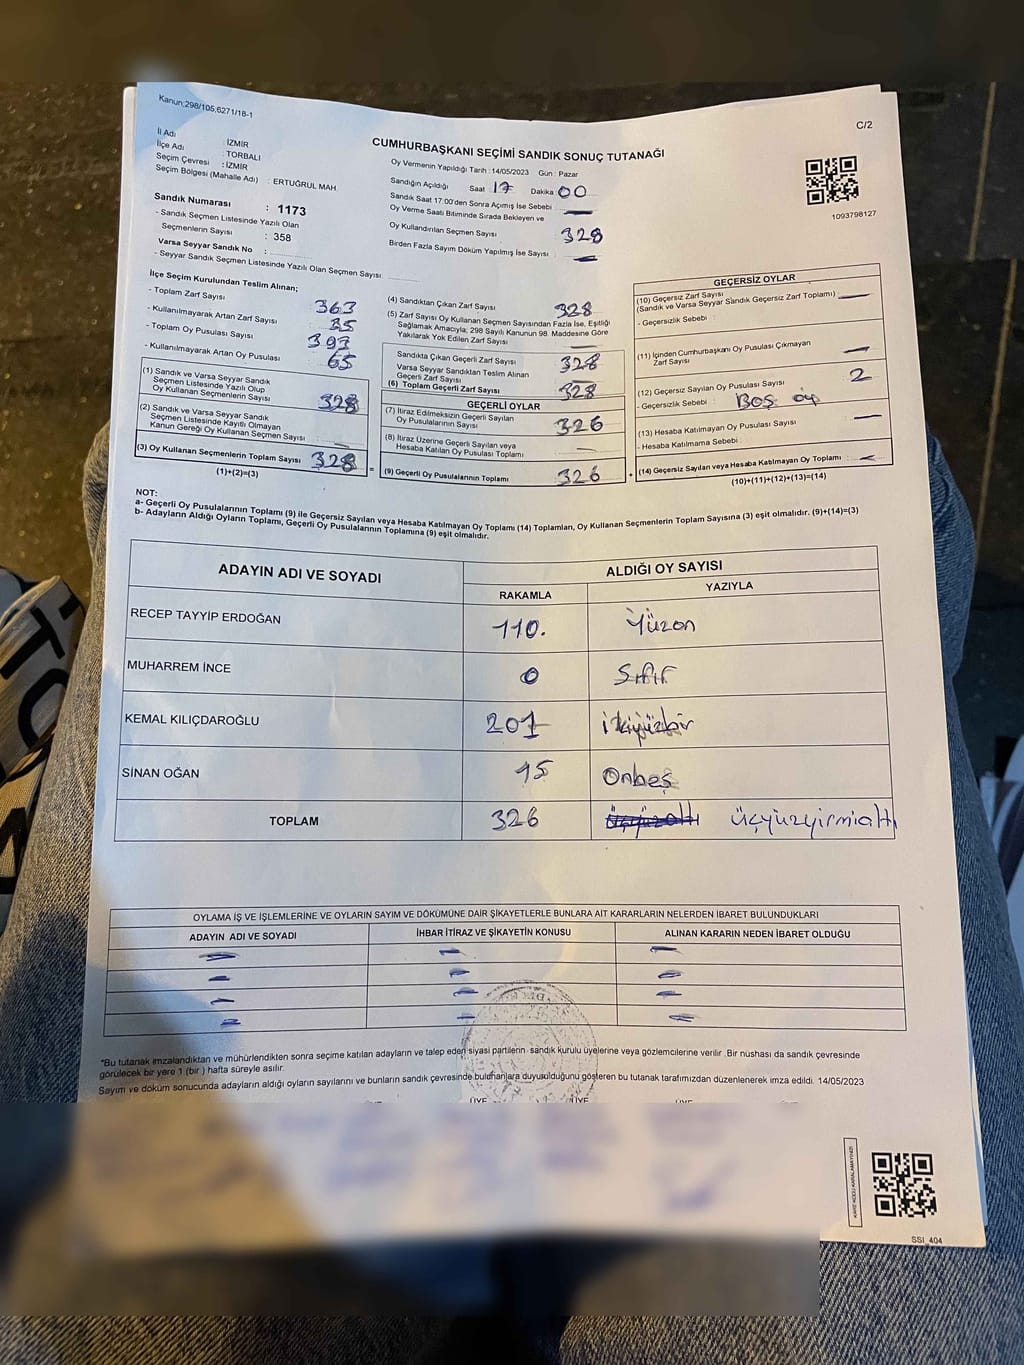 Kanun;298/105;6271/18-1
C/2
CUMHURBAŞKANI SEÇİMİ SANDIK SONUÇ TUTANAĞI
İl Adı : İZMİR
İlçe Adı : TORBALI
Seçim Çevresi : İZMİR
Seçim Bölgesi (Mahalle Adı) : ERTUĞRUL MAH
Sandık Numarası : 1173
- Sandık Seçmen Listesinde Yazılı Olan
Seçmenlerin Sayısı : 358
Varsa Seyyar Sandık No :
- Seyyar Sandık Seçmen Listesinde Yazılı Olan Seçmen Sayısı:
Oy Vermenin Yapıldığı Tarih : 14/05/2023 Gün : Pazar
Sandığın Açıldığı Saat 17 Dakika 00
Sandık Saat 17:00'den Sonra Açılmış İse Sebebi : —
Oy Verme Saati Bitiminde Sırada Bekleyen ve
Oy Kullandırılan Seçmen Sayısı 328
Birden Fazla Sayım Döküm Yapılmış İse Sayısı : —
1093798127
İlçe Seçim Kurulundan Teslim Alınan;
- Toplam Zarf Sayısı 363
- Kullanılmayarak Artan Zarf Sayısı 35
- Toplam Oy Pusulası Sayısı 393
- Kullanılmayarak Artan Oy Pusulası 65
(1) Sandık ve Varsa Seyyar Sandık
Seçmen Listesinde Yazılı Olup
Oy Kullanan Seçmenlerin Sayısı 328
(2) Sandık ve Varsa Seyyar Sandık
Seçmen Listesinde Kayıtlı Olmayan
Kanun Gereği Oy Kullanan Seçmen Sayısı —
(3) Oy Kullanan Seçmenlerin Toplam Sayısı 328
(1)+(2)=(3)
=
(4) Sandıktan Çıkan Zarf Sayısı 328
(5) Zarf Sayısı Oy Kullanan Seçmen Sayısından Fazla İse, Eşitliği
Sağlamak Amacıyla; 298 Sayılı Kanunun 98. Maddesine Göre
Yakılarak Yok Edilen Zarf Sayısı —
Sandıkta Çıkan Geçerli Zarf Sayısı 328
Varsa Seyyar Sandıktan Teslim Alınan
Geçerli Zarf Sayısı —
(6) Toplam Geçerli Zarf Sayısı 328
GEÇERLİ OYLAR
(7) İtiraz Edilmeksizin Geçerli Sayılan
Oy Pusulalarının Sayısı 326
(8) İtiraz Üzerine Geçerli Sayılan veya
Hesaba Katılan Oy Pusulası Toplamı —
(9) Geçerli Oy Pusulalarının Toplamı 326
+
GEÇERSİZ OYLAR
(10) Geçersiz Zarf Sayısı
(Sandık ve Varsa Seyyar Sandık Geçersiz Zarf Toplamı) —
- Geçersizlik Sebebi :
(11) İçinden Cumhurbaşkanı Oy Pusulası Çıkmayan
Zarf Sayısı —
(12) Geçersiz Sayılan Oy Pusulası Sayısı 2
- Geçersizlik Sebebi : Boş oy
(13) Hesaba Katılmayan Oy Pusulası Sayısı —
- Hesaba Katılmama Sebebi :
(14) Geçersiz Sayılan veya Hesaba Katılmayan Oy Toplamı : —
(10)+(11)+(12)+(13)=(14)
NOT:
a- Geçerli Oy Pusulalarının Toplamı (9) ile Geçersiz Sayılan veya Hesaba Katılmayan Oy Toplamı (14) Toplamları, Oy Kullanan Seçmenlerin Toplam Sayısına (3) eşit olmalıdır. (9)+(14)=(3)
b- Adayların Aldığı Oyların Toplamı, Geçerli Oy Pusulalarının Toplamına (9) eşit olmalıdır.
ADAYIN ADI VE SOYADI ALDIĞI OY SAYISI
RAKAMLA YAZIYLA
RECEP TAYYİP ERDOĞAN 110. Yüzon
MUHARREM İNCE 0 Sıfır
KEMAL KILIÇDAROĞLU 201 ikiyüzbir
SİNAN OĞAN 15 Onbeş
TOPLAM 326 Üçyüzaltı üçyüzyirmialtı
OYLAMA İŞ VE İŞLEMLERİNE VE OYLARIN SAYIM VE DÖKÜMÜNE DAİR ŞİKAYETLERLE BUNLARA AİT KARARLARIN NELERDEN İBARET BULUNDUKLARI
ADAYIN ADI VE SOYADI İHBAR İTİRAZ VE ŞİKAYETİN KONUSU ALINAN KARARIN NEDEN İBARET OLDUĞU
*Bu tutanak imzalandıktan ve mühürlendikten sonra seçime katılan adayların ve talep eden siyasi partilerin sandık kurulu üyelerine veya gözlemcilerine verilir. Bir nüshası da sandık çevresinde
görülecek bir yere 1 (bir) hafta süreyle asılır.
Sayım ve döküm sonucunda adayların aldığı oyların sayılarını ve bunların sandık çevresinde bulunanlara duyurulduğunu gösteren bu tutanak tarafımızdan düzenlenerek imza edildi. 14/05/2023
ÜYE ÜYE ÜYE
KARE KODU KARALAMAYINIZ!
SSI_404